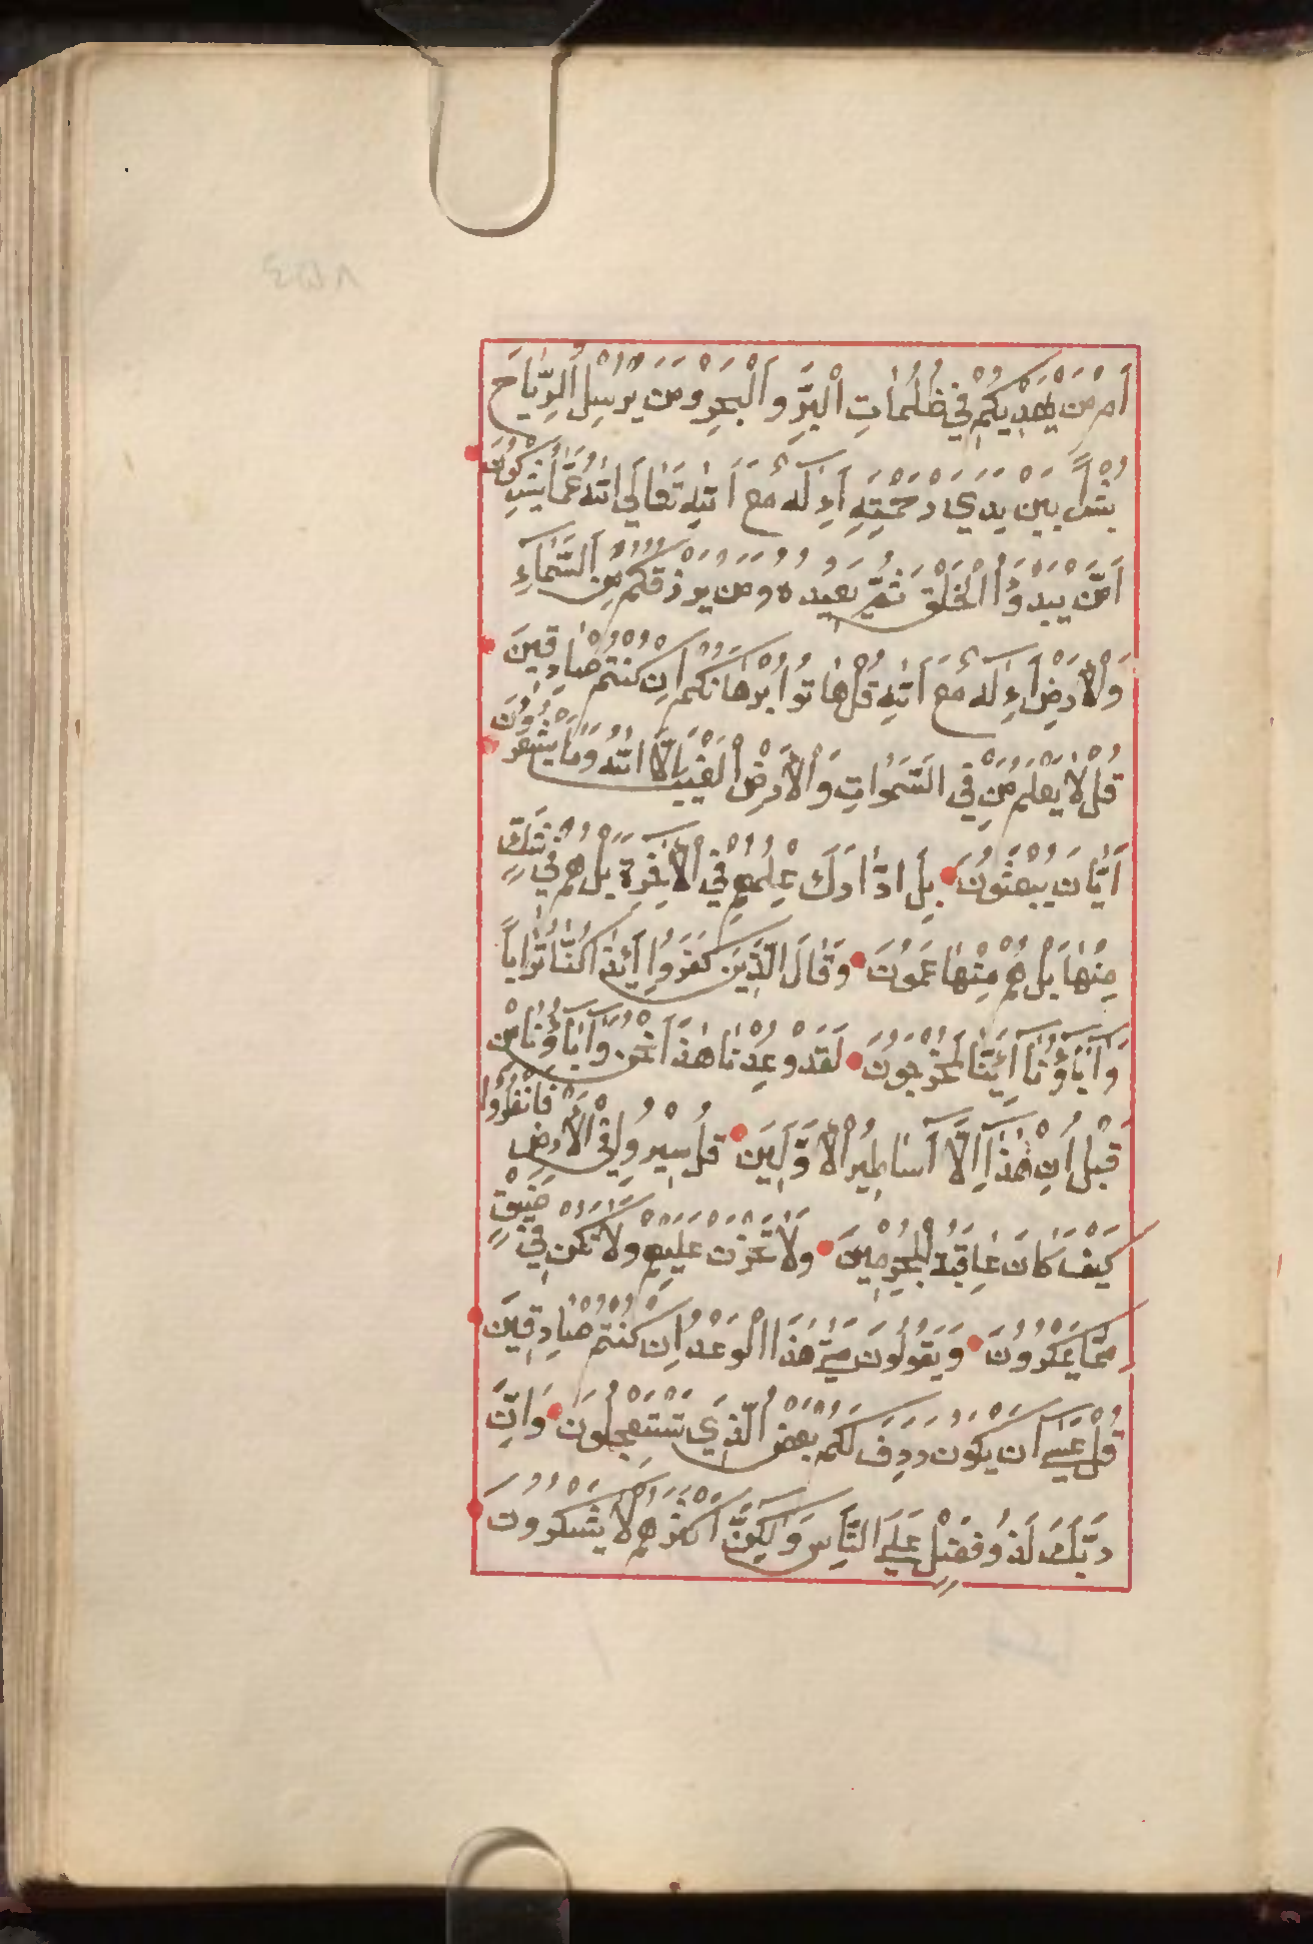 اَمْ مَنْ يَهْدِيكُمْ فِي ظُلُمَاتِ الْبَرِّ وَالْبَحْرِ وَمَنْ يُرْسِلُ الرِّيَاحَ
بُشْراً بَيْنَ يَدَيْ رَحْمَتِهِ أَءِلَهٌ مَعَ اَللّٰهِ تَعَالَي اللّٰهُ عَمَّا يُشْرِكُونَ
اَمَّنْ يَبْدَؤُا الْخَلْقَ ثُمَّ يُعِيدُهُ وَمَنْ يَرْزُقُكُمْ مِنَ السَّمَاءِ
وَالْأَرْضِ أَءِلَهٌ مَعَ اَللّٰهِ قُلْ هَاتُوا بُرْهَانَكُمْ اِنْ كُنْتُمْ صَادِقِينَ
قُلْ لَا يَعْلَمُ مَنْ فِي السَّمَوَاتِ وَالْأَرْضِ الْغَيْبَ اِلَّا اللّٰهُ وَمَا يَشْعُرُونَ
اَيَّانَ يُبْعَثُونَ بَلِ ادَّارَكَ عِلْمُهُمْ فِي الْآخِرَةِ بَلْ هُمْ فِي شَكٍّ
مِنْهَا بَلْ هُمْ مِنْهَا عَمُونَ وَقَالَ الَّذِينَ كَفَرُوا أَئِذَا كُنَّا تُرَاباً
وَآبَاؤُنَا أَئِنَّا لَمُخْرَجُونَ لَقَدْ وُعِدْنَا هَذَا نَحْنُ وَآبَاؤُنَا مِنْ
قَبْلُ اِنْ هَذَا اِلَّا آسَاطِيرُ الْأَوَّلِينَ قُلْ سِيرُوا فِي الْأَرْضِ فَانْظُرُوا
كَيْفَ كَانَ عَاقِبَةُ الْمُجْرِمِينَ وَلَا تَحْزَنْ عَلَيْهِمْ وَلَا تَكُنْ فِي ضَيْقٍ
مِمَّا يَمْكُرُونَ وَيَقُولُونَ مَتَى هَذَا الْوَعْدُ اِنْ كُنْتُمْ صَادِقِينَ
قُلْ عَسَى اَنْ يَكُونَ رَدِفَ لَكُمْ بَعْضُ الَّذِي تَسْتَعْجِلُونَ وَاِنَّ
رَبَّكَ لَذُو فَضْلٍ عَلَى النَّاسِ وَلَكِنَّ اَكْثَرَهُمْ لَا يَشْكُرُونَ